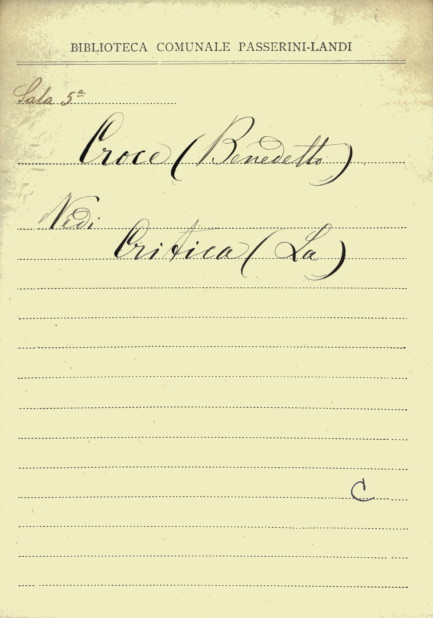 BIBLIOTECA COMUNALE PASSERINI-LANDI
Sala 5ª
Croce (Benedetto)
Vedi
Critica (La)
C